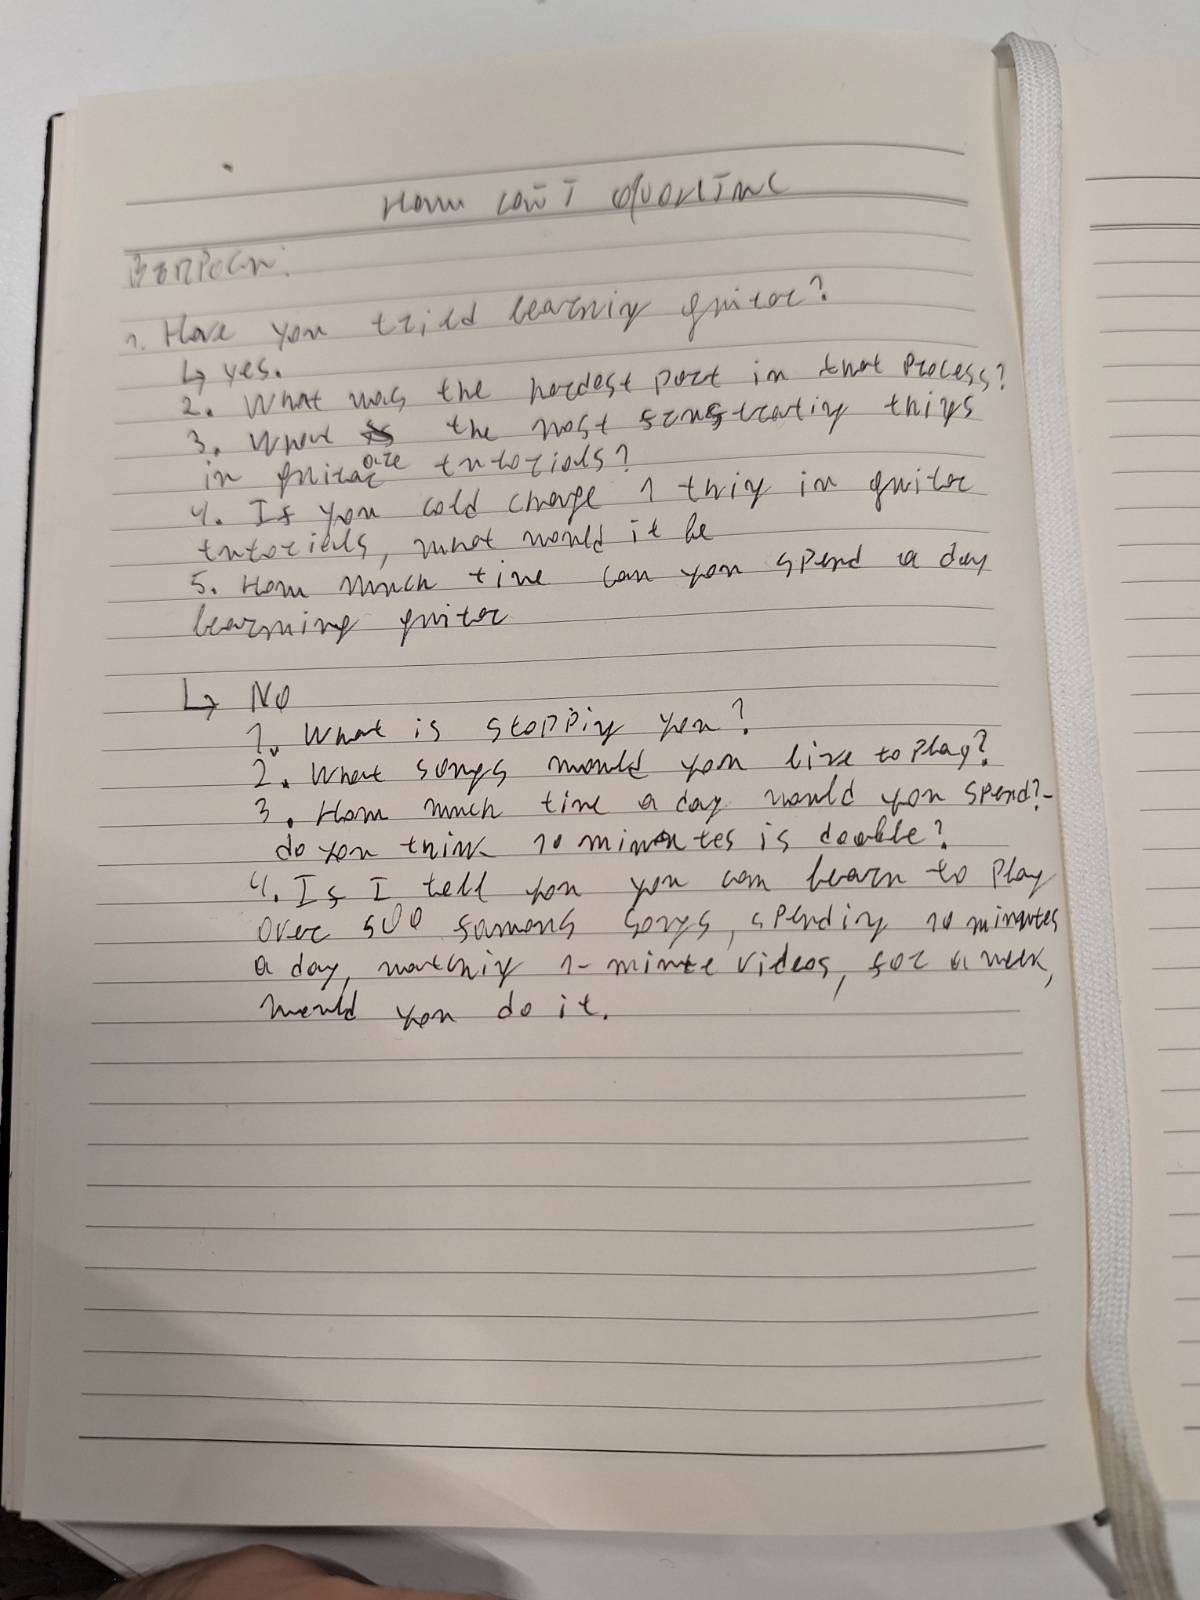 1. Have you tried learning guitar?
↳ yes.
2. What was the hardest part in that process?
3. What are the most frustrating things
in guitar tutorials?
4. If you cold change 1 thing in guitar
tutorials, what would it be
5. How much time can you spend a day
learning guitor
↳ No
1. What is stopping you?
2. What songs would you like to play?
3. How much time a day would you spend?-
do you think 10 minutes is doable?
4. If I tell you you can learn to play
over 500 famous songs, spending 10 minutes
a day, watching 1-minute videos, for a week,
would you do it.